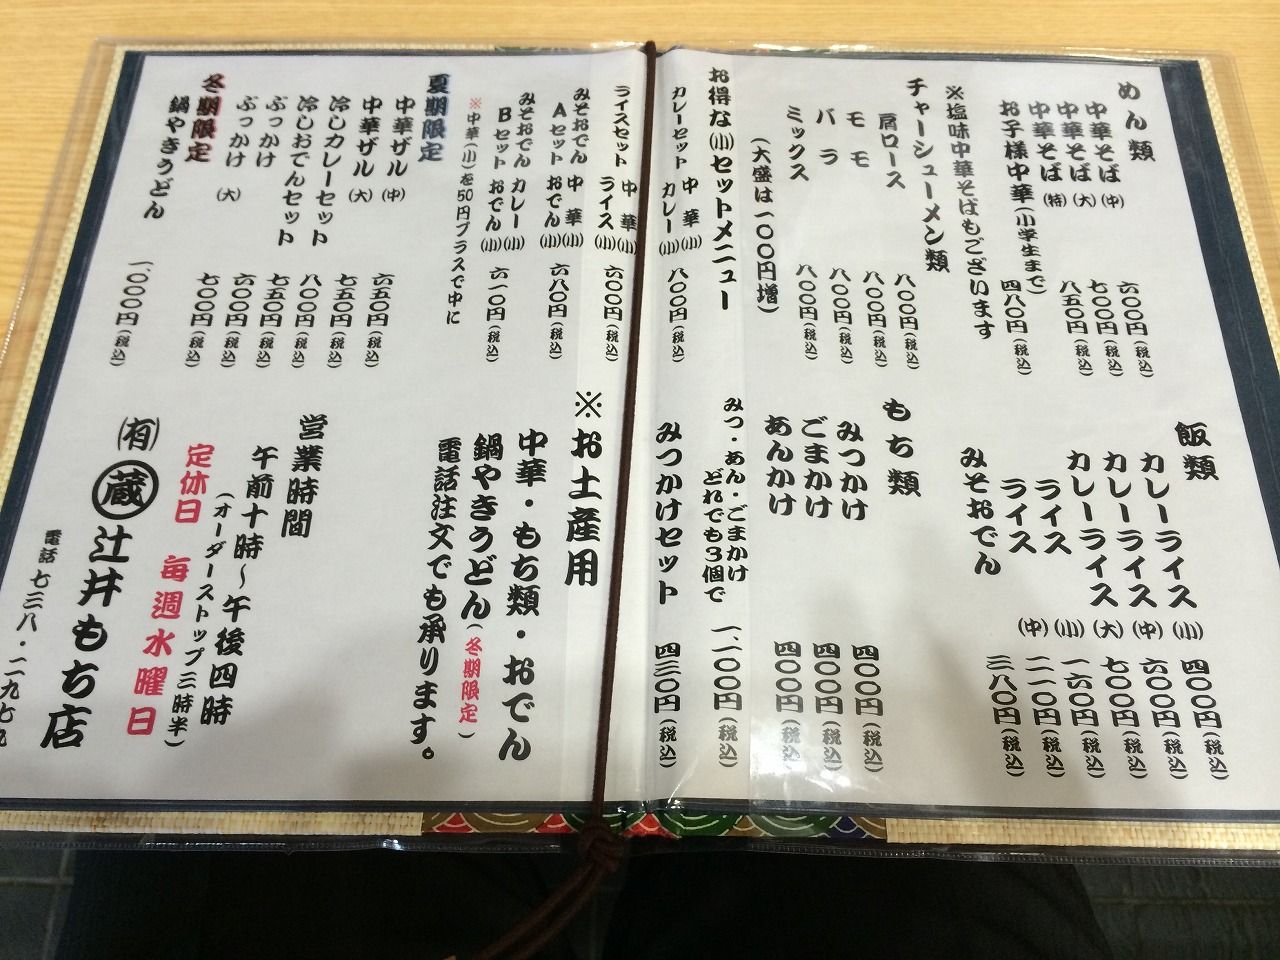 めん類
中華そば（中）　六〇〇円（税込）
中華そば（大）　七〇〇円（税込）
中華そば（特）　八五〇円（税込）
お子様中華（小学生まで）　四八〇円（税込）
※塩味中華そばもございます
チャーシューメン類
肩ロース　八〇〇円（税込）
モモ　八〇〇円（税込）
バラ　八〇〇円（税込）
ミックス　八〇〇円（税込）
（大盛は一〇〇円増）
お得な（小）セットメニュー
カレーセット　中華（小）　カレー（小）　八〇〇円（税込）
ライスセット　中華（小）　ライス（小）　六〇〇円（税込）
みそおでんAセット　中華（小）　おでん（小）　六八〇円（税込）
みそおでんBセット　カレー（小）　おでん（小）　六一〇円（税込）
※中華（小）を50円プラスで中に
夏期限定
中華ザル（中）　六五〇円（税込）
中華ザル（大）　七五〇円（税込）
冷しカレーセット　八〇〇円（税込）
冷しおでんセット　七五〇円（税込）
ぶっかけ　六〇〇円（税込）
ぶっかけ（大）　七〇〇円（税込）
冬期限定
鍋やきうどん　一、〇〇〇円（税込）
飯類
カレーライス（小）　四〇〇円（税込）
カレーライス（中）　六〇〇円（税込）
カレーライス（大）　七〇〇円（税込）
ライス（小）　一六〇円（税込）
ライス（中）　二一〇円（税込）
みそおでん　三八〇円（税込）
もち類
みつかけ　四〇〇円（税込）
ごまかけ　四〇〇円（税込）
あんかけ　四〇〇円（税込）
みつ・あん・ごまかけ
どれでも3個で　一、一〇〇円（税込）
みつかけセット　四三〇円（税込）
※お土産用
中華・もち類・おでん
鍋やきうどん（冬期限定）
電話注文でも承ります。
営業時間
午前十時～午後四時
（オーダーストップ三時半）
定休日　毎週水曜日
（有）蔵辻井もち店
電話　七三八・二九七九